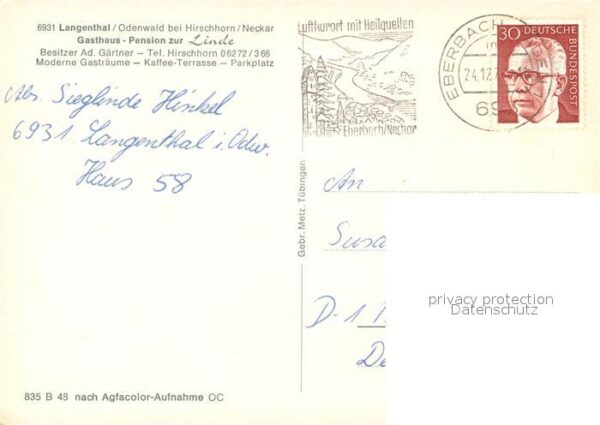 6931 Langenthal/Odenwald bei Hirschhorn/Neckar
Gasthaus - Pension zur Linde
Besitzer Ad. Gärtner – Tel. Hirschhorn 06272/366
Moderne Gasträume – Kaffee-Terrasse – Parkplatz
Abs. Sieglinde Hinkel
6931 Langenthal i. Odw.
Haus 58
Luftkurort mit Heilquellen
Eberbach/Neckar
EBERBACH
24.12.
69
30 DEUTSCHE BUNDESPOST
Gebr. Metz, Tübingen
An
Susa
D-1
De
privacy protection
Datenschutz
835 B 48 nach Agfacolor-Aufnahme OC